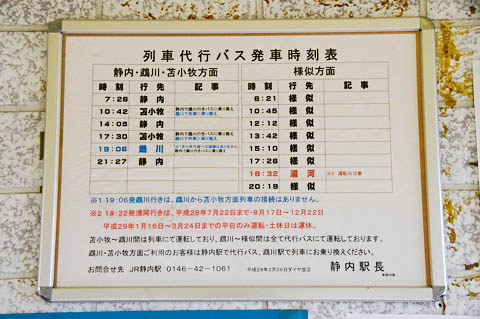 列車代行バス発車時刻表
静内・鵡川・苫小牧方面
時刻 行先 記事
7:26 静内
10:42 苫小牧 静内で鵡川行きバスに乗り換え 鵡川で列車に乗り換え
14:05 静内
17:30 苫小牧 静内で鵡川行きバスに乗り換え 鵡川で列車に乗り換え
19:06 鵡川
21:27 静内
様似方面
時刻 行先 記事
6:21 様似
10:45 様似
12:12 様似
13:42 様似
15:10 様似
17:26 様似
18:32 浦河 ※2 運転日注意
20:19 様似
※1 19:06発鵡川行きは、鵡川から苫小牧方面列車の接続はありません。
※2 18:32発浦河行きは、平成28年7月22日まで・8月17日～12月22日
平成29年1月16日～3月24日までの平日のみ運転・土休日は運休。
苫小牧～鵡川間は列車にて運転しており、鵡川～様似間は全て代行バスにて運転しております。
鵡川・苫小牧方面ご利用のお客様は静内駅で代行バス、鵡川駅で列車にお乗り換えください。
お問合せ先 JR静内駅 0146-42-1061 平成28年3月26日ダイヤ改正 静内駅長